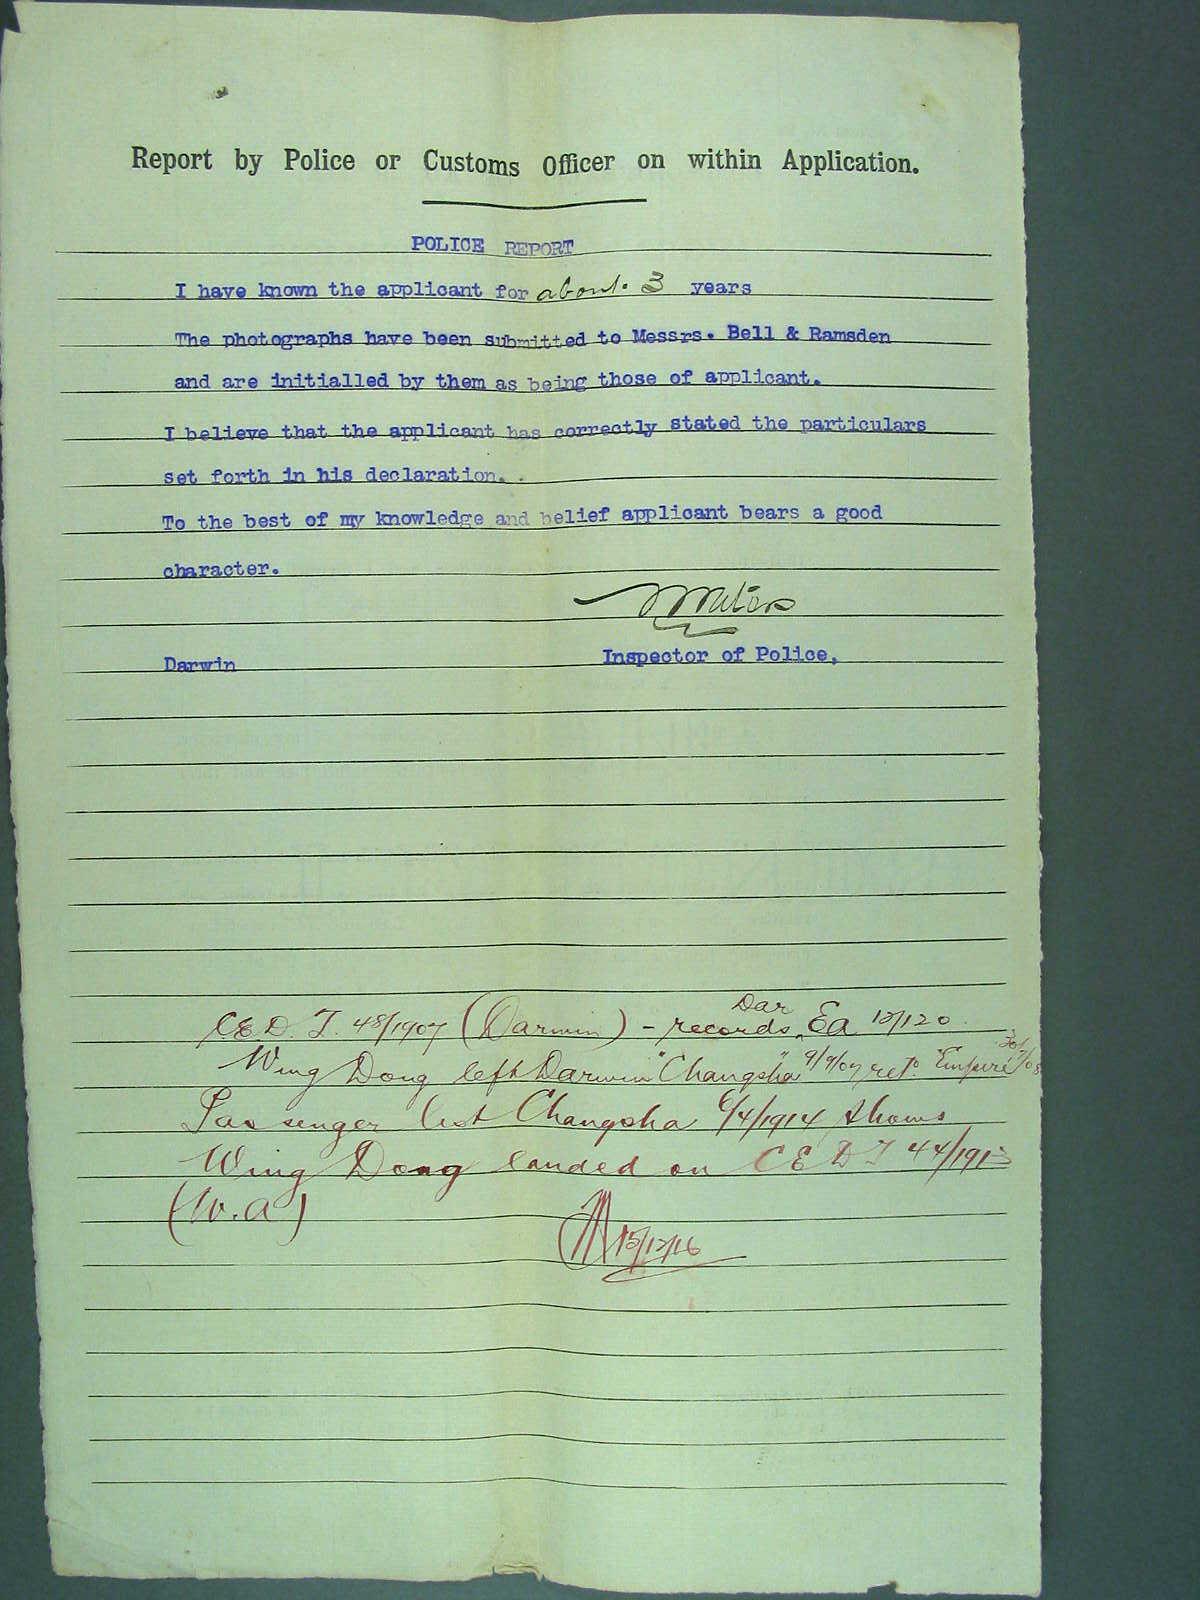 Report by Police or Customs Officer on within Application.
POLICE REPORT
I have known the applicant for about 3 years
The photographs have been submitted to Messrs. Bell & Ramsden
and are initialled by them as being those of applicant.
I believe that the applicant has correctly stated the particulars
set forth in his declaration.
To the best of my knowledge and belief applicant bears a good
character.
Waters
Darwin Inspector of Police.
C.E.D.T. 48/1907 (Darwin) - records Dar Ea 12/120
Wing Dong left Darwin "Changsha" 9/9/07 retd. "Empire"
Passenger list Changsha 6/4/1914 shows
Wing Dong landed on CEDT 44/1913
(W.A)
15/12/16